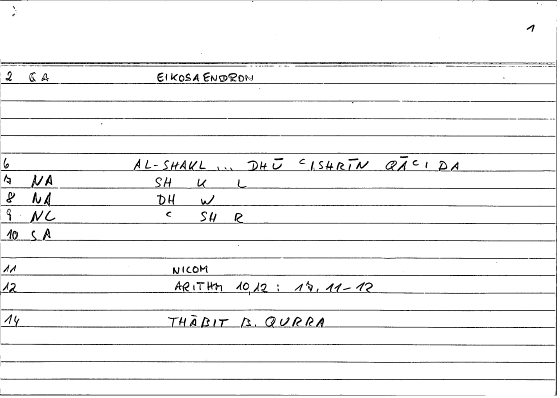 1
2 SA EIKOSAENDRON
6 AL-SHAKL ... DHŪ ʿISHRĪN QĀʿIDA
7 NA SH K L
8 NA DH W
9 NC ʿ SH R
10 SA
11 NICOM
12 ARITHM 10,12 : 17, 11-12
14 THĀBIT B. QURRA